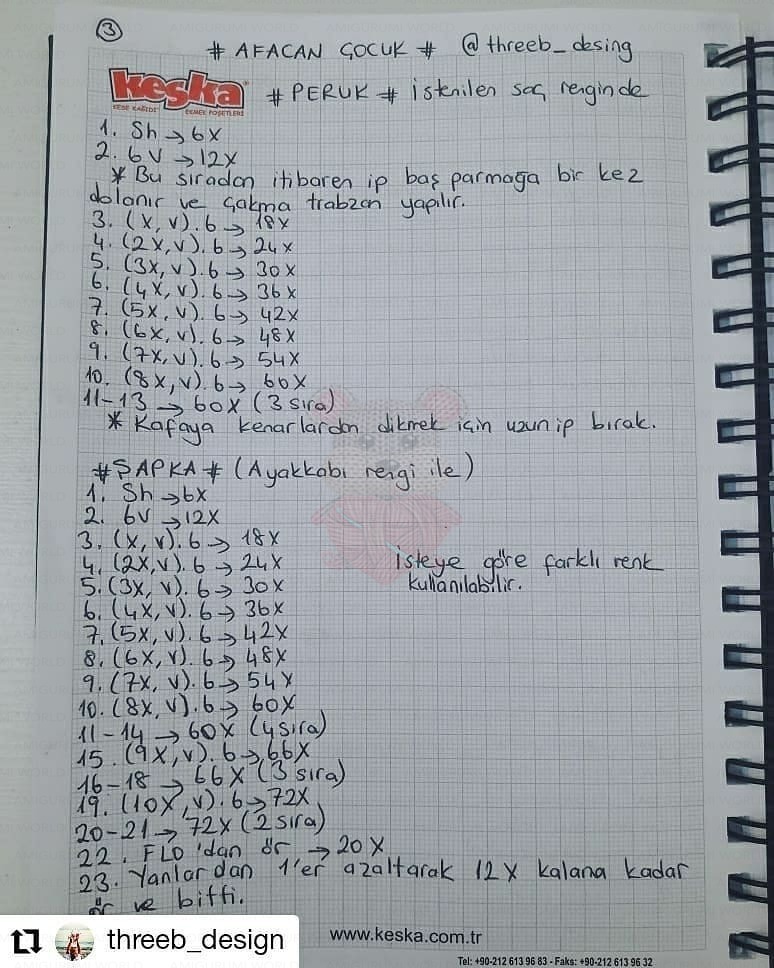 3
# AFACAN ÇOCUK # @threeb_desing
keska
KESE KAĞIDI
EKMEK POŞETLERİ
# PERUK # istenilen saç renginde
1. Sh → 6X
2. 6V → 12X
* Bu sıradan itibaren ip baş parmağa bir kez
dolanır ve çakma trabzan yapılır.
3. (X, V).6 → 18X
4. (2X, V).6 → 24X
5. (3X, V).6 → 30X
6. (4X, V).6 → 36X
7. (5X, V).6 → 42X
8. (6X, V).6 → 48X
9. (7X, V).6 → 54X
10. (8X, V).6 → 60X
11-13 → 60X (3 sıra)
* Kafaya kenarlardan dikmek için uzun ip bırak.
# ŞAPKA # (Ayakkabı rengi ile)
1. Sh → 6X
2. 6V → 12X
3. (X, V).6 → 18X
4. (2X, V).6 → 24X
5. (3X, V).6 → 30X
isteye göre farklı renk
kullanılabilir.
6. (4X, V).6 → 36X
7. (5X, V).6 → 42X
8. (6X, V).6 → 48X
9. (7X, V).6 → 54X
10. (8X, V).6 → 60X
11-14 → 60X (4 sıra)
15. (9X, V).6 → 66X
16-18 → 66X (3 sıra)
19. (10X, V).6 → 72X
20-21 → 72X (2 sıra)
22. FLO'dan ör → 20X
23. Yanlardan 1'er azaltarak 12X kalana kadar
ör ve bitti.
threeb_design
www.keska.com.tr
Tel: +90-212 613 96 83 - Faks: +90-212 613 96 32